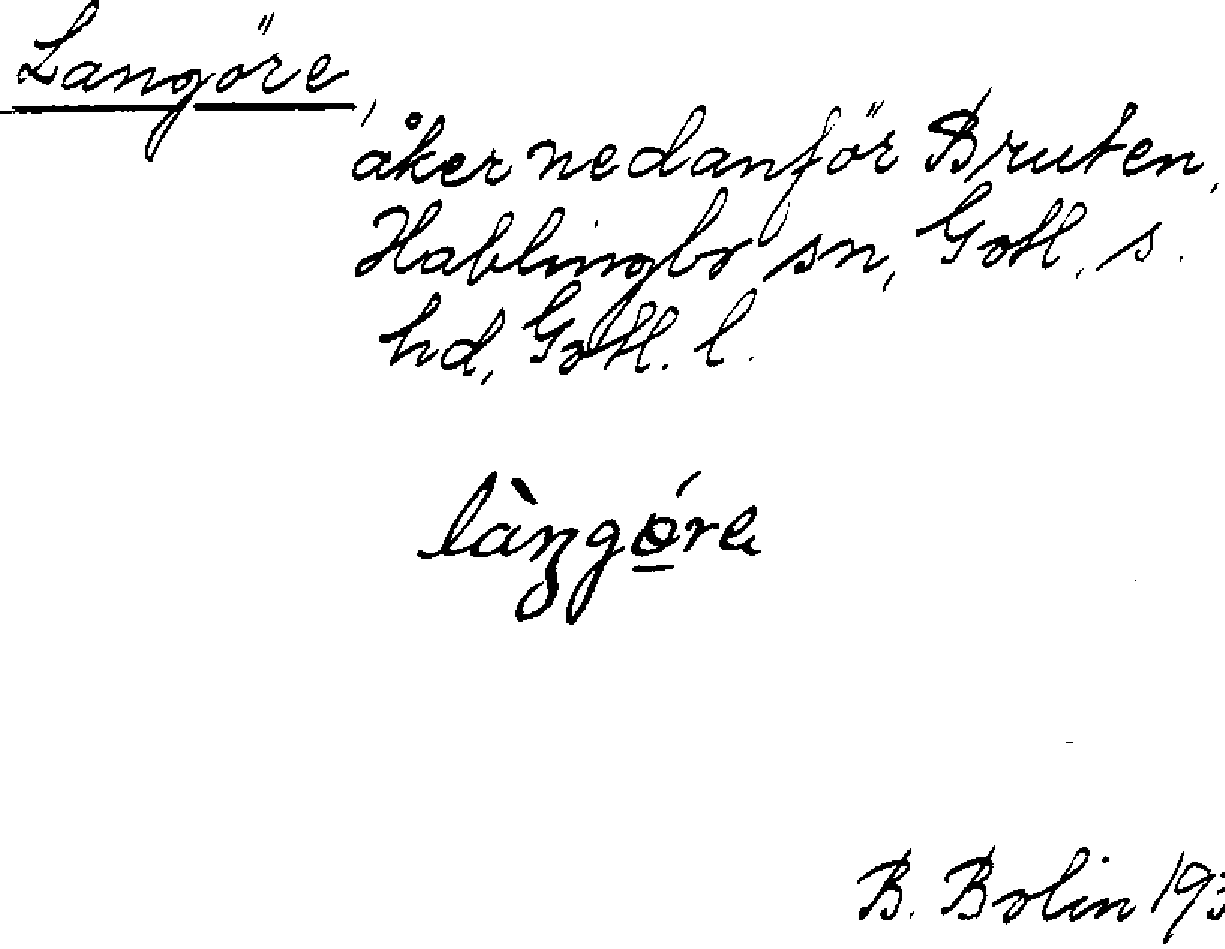 Langöre,
åker nedanför Bruten,
Hablingbo sn, Gotl. s.
hd, Gotl. l.
làŋgó̲re
B. Bolin 193